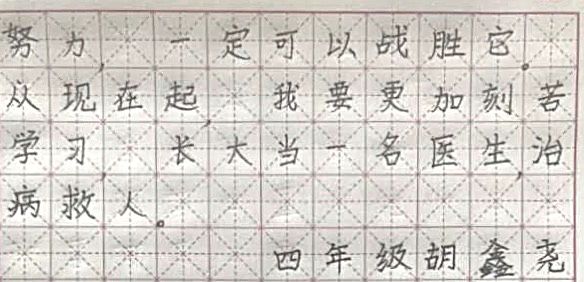 努力，一定可以战胜它。
从现在起，我要更加刻苦
学习，长大当一名医生，治
病救人。
四年级胡鑫尧